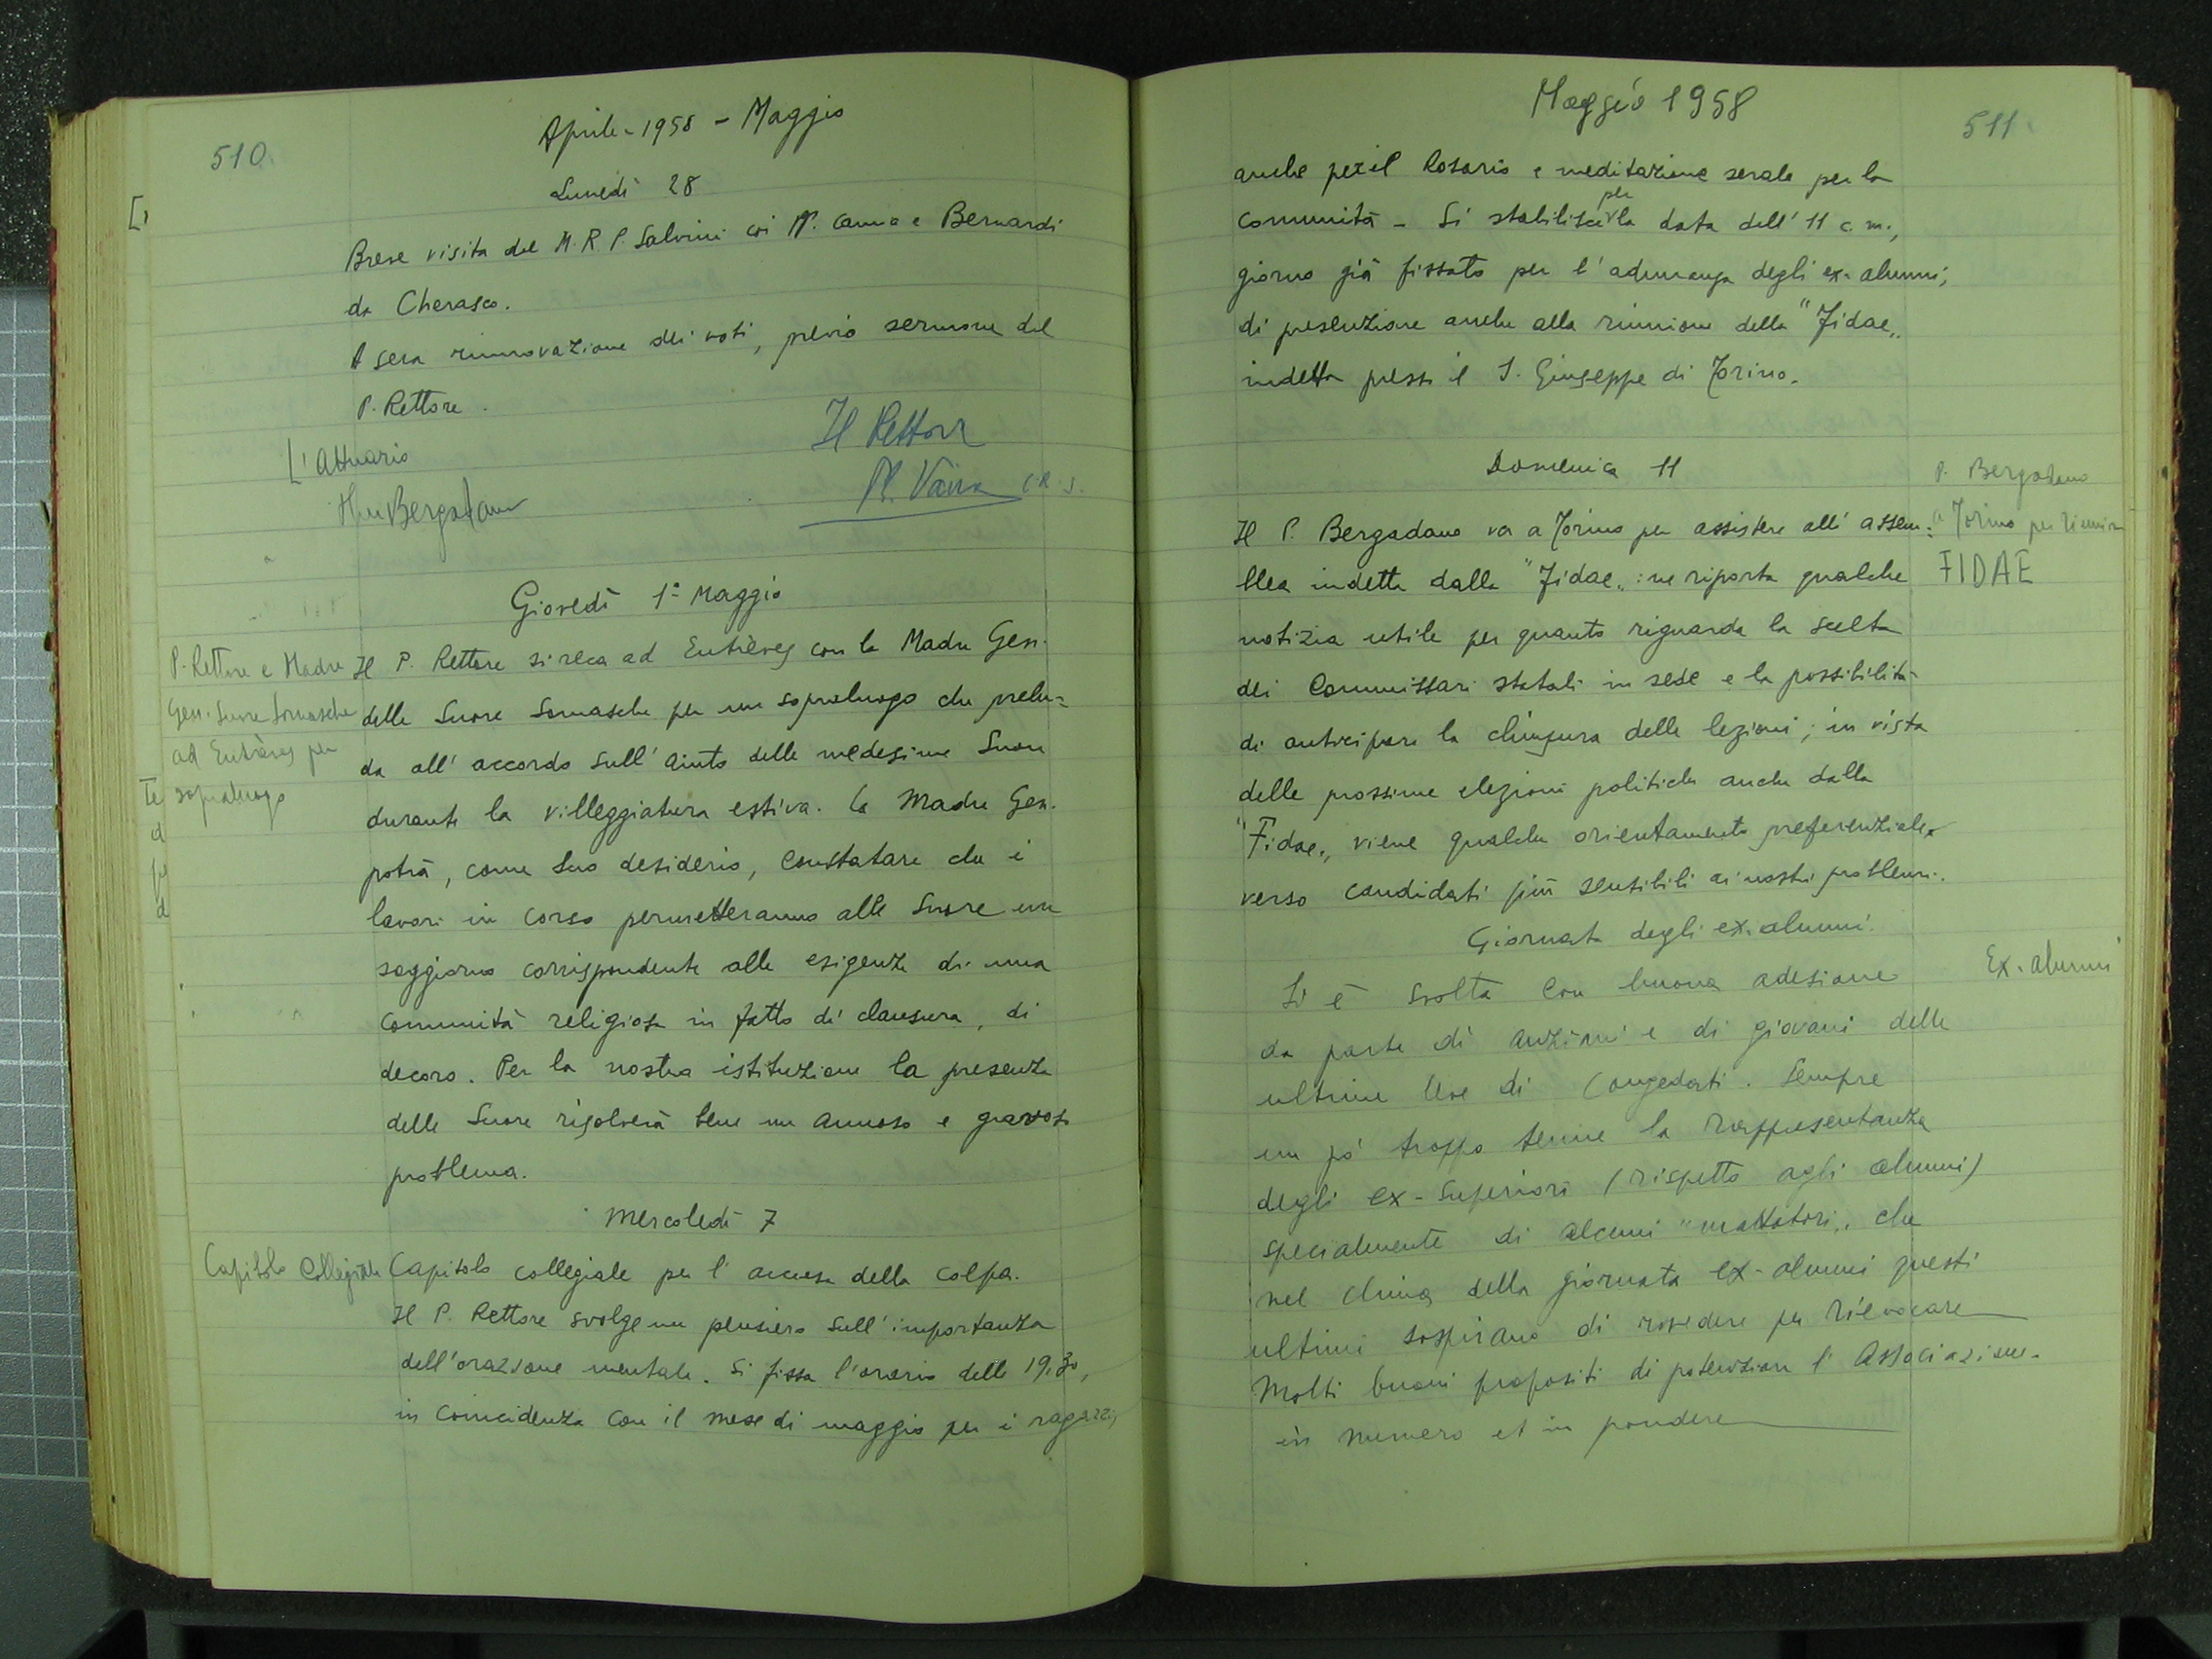 510
Aprile - 1958 - Maggio
Lunedì 28
Breve visita del M. R. P. Salvini coi PP. Canna e Bernardi
da Cherasco.
A sera rinnovazione dei voti, previo sermone del
P. Rettore.
L'Attuario
Bergadano
Il Rettore
P. Vaira C.R.S.
Giovedì 1° Maggio
P. Rettore e Madre
Gen. Suore Somasche
ad Entrèves per
sopraluogo
Il P. Rettore si reca ad Entrèves con la Madre Gen.
delle Suore Somasche per un sopraluogo che prelu=
da all'accordo sull'aiuto delle medesime Suore
durante la villeggiatura estiva. La Madre Gen.
potrà, come suo desiderio, constatare che i
lavori in corso permetteranno alle Suore un
soggiorno corrispondente alle esigenze di una
comunità religiosa in fatto di clausura, di
decoro. Per la nostra istituzione la presenza
delle Suore risolverà bene un annoso e gravoso
problema.
Mercoledì 7
Capitolo Collegiale
Capitolo collegiale per l'accusa della colpa.
Il P. Rettore svolge un pensiero sull'importanza
dell'orazione mentale. Si fissa l'orario delle 19,30,
in coincidenza con il mese di maggio per i ragazzi,
Maggio 1958
511
anche per il Rosario e meditazione serale per la
comunità - Si stabilisce per la data dell'11 c.m.,
giorno già fissato per l'adunanza degli ex-alunni,
di presenziare anche alla riunione della "Fidae„
indetta presso il S. Giuseppe di Torino.
Domenica 11
P. Bergadano
a Torino per riunione
FIDAE
Il P. Bergadano va a Torino per assistere all'assem=
blea indetta dalla "Fidae„: ne riporta qualche
notizia utile per quanto riguarda la scelta
dei Commissari statali in sede e la possibilità
di anticipare la chiusura delle lezioni; in vista
delle prossime elezioni politiche anche dalla
"Fidae„ viene qualche orientamento preferenziale
verso candidati più sensibili ai nostri problemi.
Giornata degli ex-alunni.
Ex-alunni
Si è svolta con buona adesione
da parte di anziani e di giovani delle
ultime leve di congedati. Sempre
un po' troppo tenue la rappresentanza
degli ex-Superiori (rispetto agli alunni)
specialmente di alcuni "mattatori„ che
nel clima della giornata ex-alunni questi
ultimi sospirano di rivedere per rievocare
Molti buoni propositi di potenziare l'Associazione
in numero et in pondere